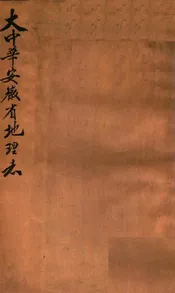 大中華安徽省地理志